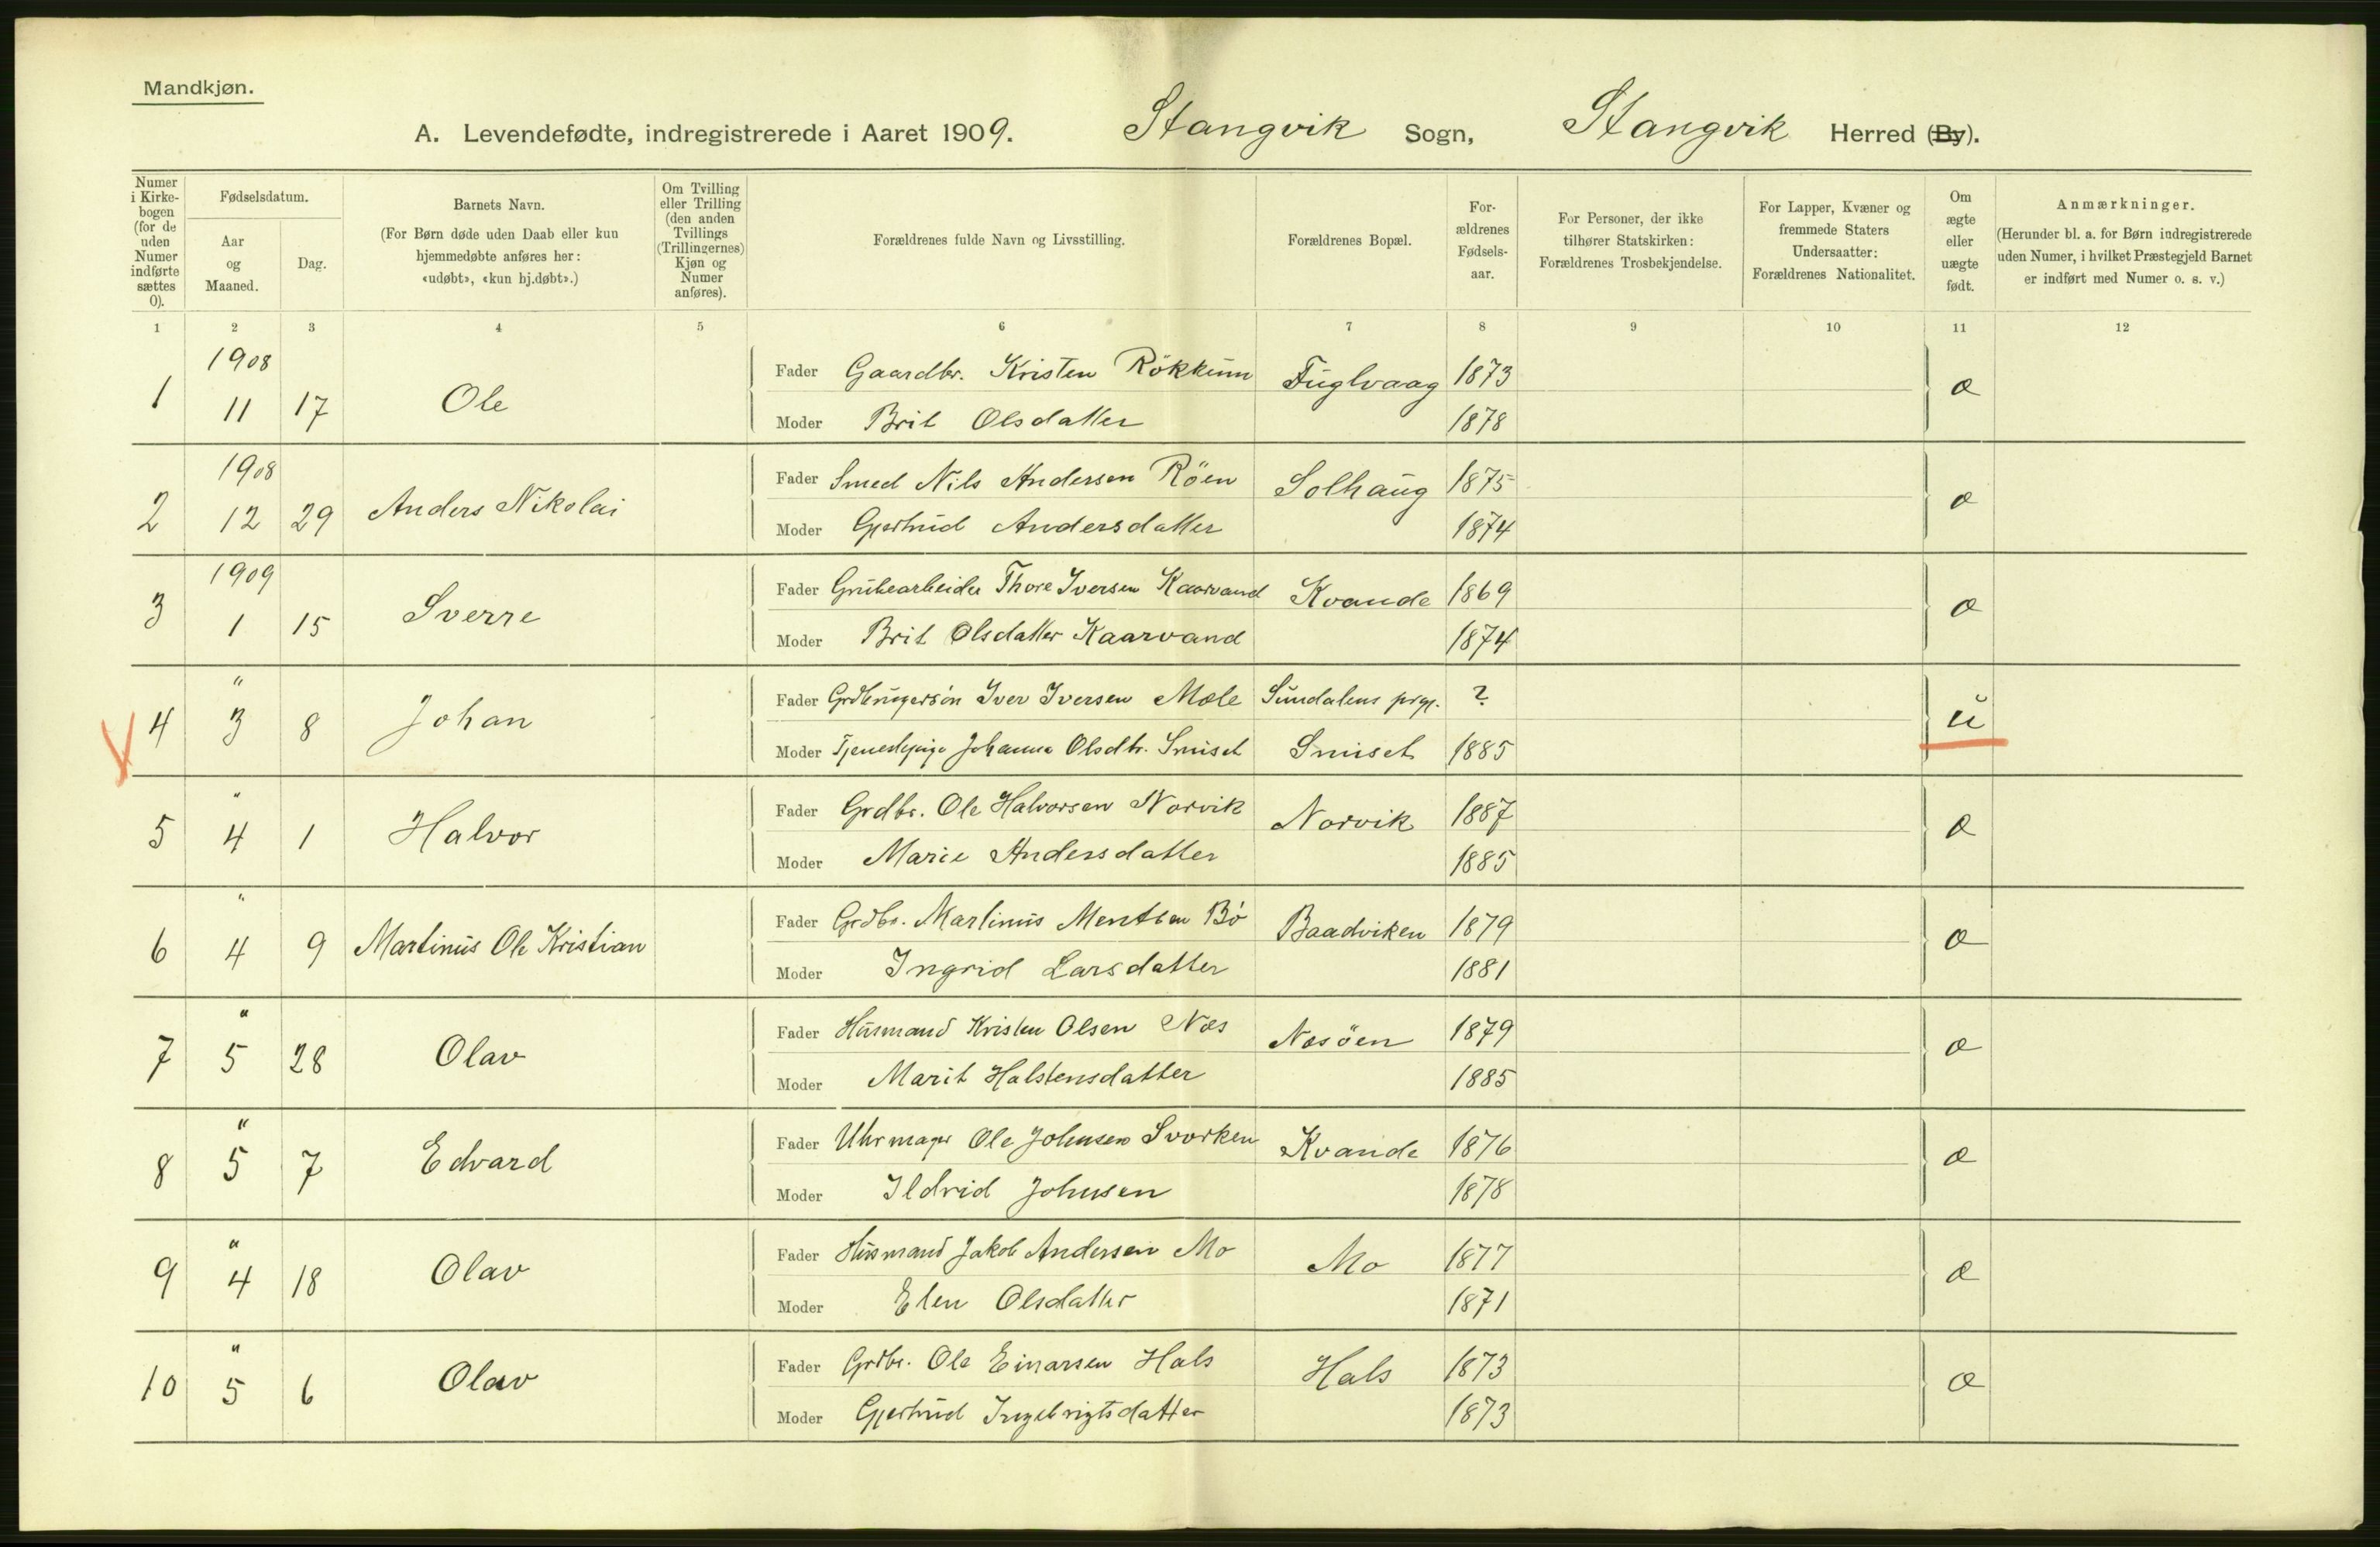 Mandkjøn.
A. Levendefødte, indregistrerede i Aaret 1909. Stangvik Sogn, Stangvik Herred (By).
Numer i Kirkebogen (for de uden Numer indførte sættes 0).
Fødselsdatum.
Aar og Maaned.
Dag.
Barnets Navn.
(For Børn døde uden Daab eller kun hjemmedøbte anføres her: «udøbt», «kun hj.døbt».)
Om Tvilling eller Trilling (den anden Tvillings (Trillingernes) Kjøn og Numer anføres).
Forældrenes fulde Navn og Livsstilling.
Forældrenes Bopæl.
Forældrenes Fødselsaar.
For Personer, der ikke tilhører Statskirken: Forældrenes Trosbekjendelse.
For Lapper, Kvæner og fremmede Staters Undersaatter: Forældrenes Nationalitet.
Om ægte eller uægte født.
Anmærkninger.
(Herunder bl. a. for Børn indregistrerede uden Numer, i hvilket Præstegjeld Barnet er indført med Numer o. s. v.)
1 2 3 4 5 6 7 8 9 10 11 12
1908
1 11 17 Ole Fader Gaardbr. Kristen Rökkum Fuglvaag 1873 æ
Moder Brit Olsdatter 1878
1908
2 12 29 Anders Nikolai Fader Smed Nils Andersen Röen Solhaug 1875 æ
Moder Gjertrud Andersdatter 1874
1909
3 1 15 Sverre Fader Grubearbeider Thore Iversen Kaarvand Kvande 1869 æ
Moder Brit Olsdatter Kaarvand 1874
"
4 3 8 Johan Fader Grdbrugersön Iver Iversen Mæle Sundalens prgj. ? u
Moder Tjenestepige Johanna Olsdtr. Smiset Smiset 1885
"
5 4 1 Halvor Fader Grdbr. Ole Halvorsen Norvik Norvik 1887 æ
Moder Marie Andersdatter 1885
"
6 4 9 Martinus Ole Kristian Fader Grdbr. Martinus Mentsen Bö Baadviken 1879 æ
Moder Ingrid Larsdatter 1881
"
7 5 28 Olav Fader Husmand Kristen Olsen Næs Næsöen 1879 æ
Moder Marit Halstensdatter 1885
"
8 5 7 Edvard Fader Uhrmager Ole Johnsen Svorken Kvande 1876 æ
Moder Ildrid Johnsen 1878
"
9 4 18 Olav Fader Husmand Jakob Andersen Mo Mo 1877 æ
Moder Elen Olsdatter 1871
"
10 5 6 Olav Fader Grdbr. Ole Einarsen Hals Hals 1873 æ
Moder Gjertrud Ingebrigtsdatter 1873